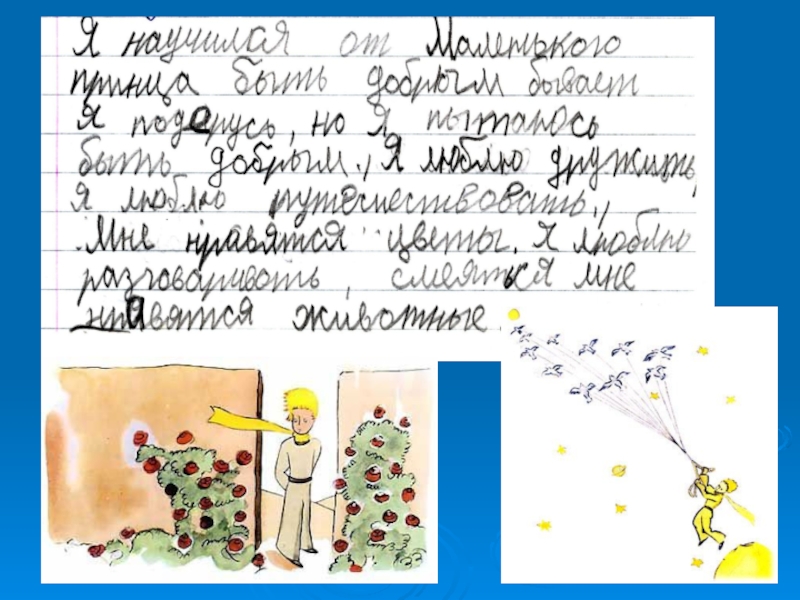 Я научился от Маленького
принца быть добрым бывает
я подерусь, но я пытаюсь
быть добрым., Я люблю дружить,
я люблю путешествовать.,
Мне нравятся цветы. Я люблю
разговаривать, смеяться мне
нравятся животные